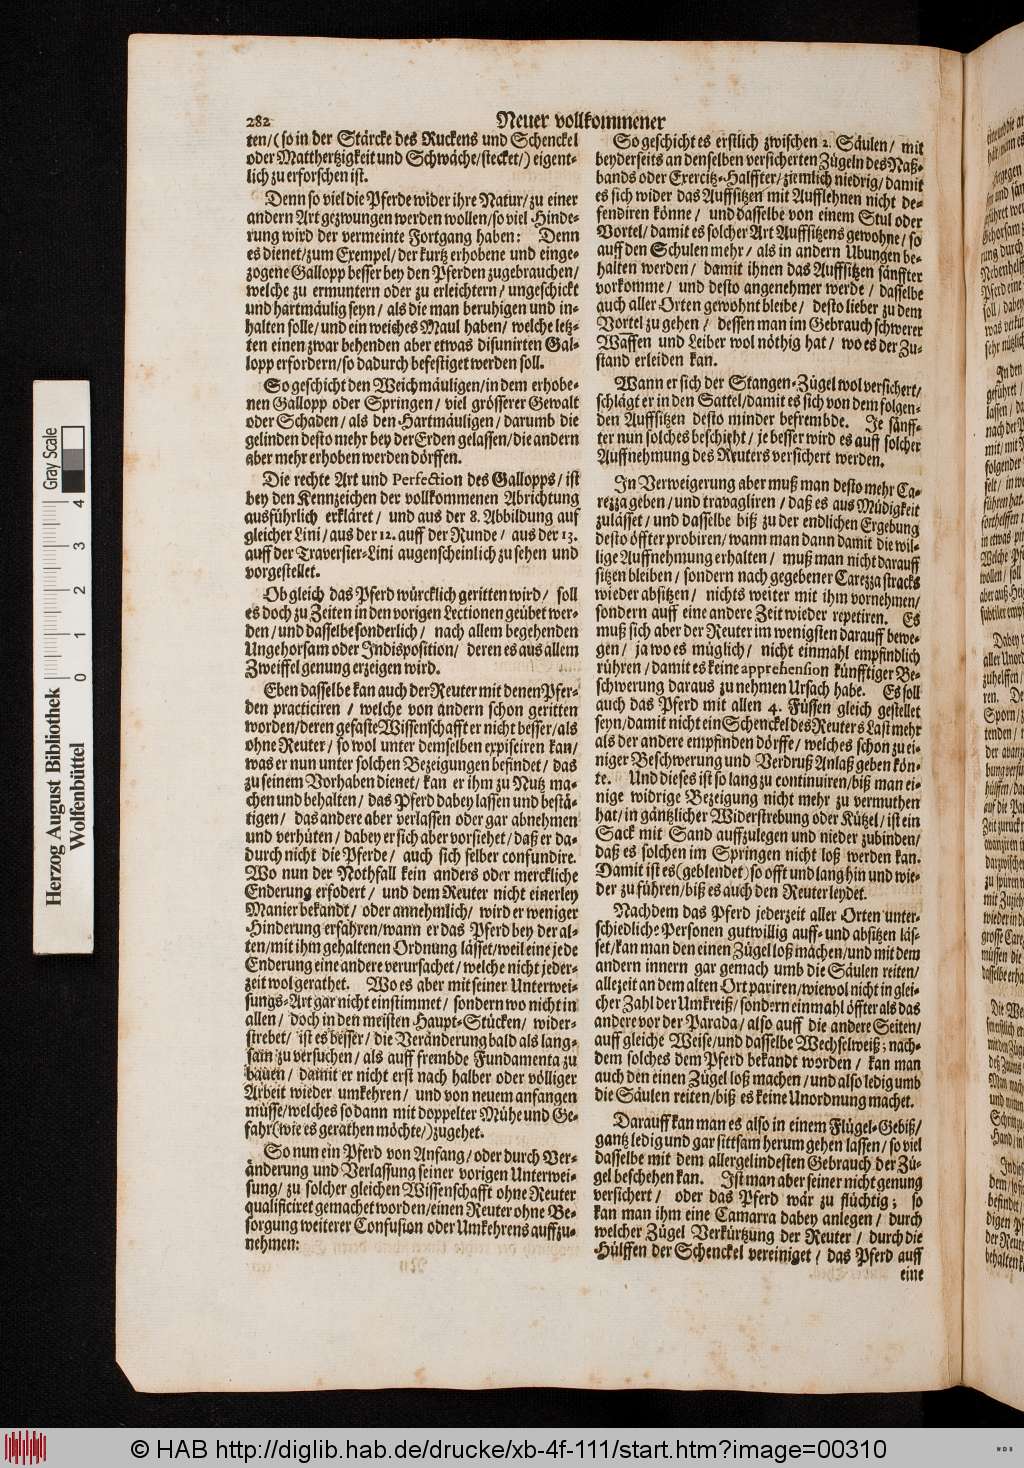 282
Neuer vollkommener
ten/(so in der Stärcke des Ruckens und Schenckel
oder Mattherzigkeit und Schwäche/stecket/) eigent-
lich zu erforschen ist.
Denn so viel die Pferde wider ihre Natur/zu einer
andern Art gezwungen werden wollen/so viel Hinde-
rung wird der vermeinte Fortgang haben: Denn
es dienet/zum Exempel/der kurtz erhobene und einge-
zogene Gallopp besser bey den Pferden zugebrauchen/
welche zu ermuntern oder zu erleichtern/ ungeschickt
und hartmäulig seyn/ als die man beruhigen und in-
halten solle/und ein weiches Maul haben/ welche letz-
ten einen zwar behenden aber etwas disunirten Gal-
lopp erfordern/so dadurch befestiget werden soll.
So geschicht den Weichmäuligen/in dem erhobe-
nen Gallopp oder Springen/ viel grösserer Gewalt
oder Schaden/ als den Hartmäuligen/ darumb die
gelinden desto mehr bey der Erden gelassen/die andern
aber mehr erhoben werden dörffen.
Die rechte Art und Perfection des Gallopps/ ist
bey den Kennzeichen der vollkommenen Abrichtung
ausführlich erkläret/ und aus der 8. Abbildung auf
gleicher Lini/ aus der 12. auff der Runde/ aus der 13.
auff der Traversier-Lini augenscheinlich zu sehen und
vorgestellet.
Ob gleich das Pferd würcklich geritten wird/ soll
es doch zu Zeiten in den vorigen Lectionen geübet wer-
den/ und dasselbe sonderlich/ nach allem begehenden
Ungehorsam oder Indisposition/ deren es aus allem
Zweiffel genung erzeigen wird.
Eben dasselbe kan auch der Reuter mit denen Pfer-
den practiciren/ welche von andern schon geritten
worden/deren gefaste Wissenschafft er nicht besser/als
ohne Reuter/ so wol unter demselben expisciren kan/
was er nun unter solchen Bezeigungen befindet/ das
zu seinem Vorhaben dienet/ kan er ihm zu Nutz ma-
chen und behalten/ das Pferd dabey lassen und bestä-
tigen/ das andere aber verlassen oder gar abnehmen
und verhüten/ dabey er sich aber vorsiehet/ daß er da-
durch nicht die Pferde/ auch sich selber confundire.
Wo nun der Nothfall kein anders oder merckliche
Enderung erfodert/ und dem Reuter nicht einerley
Manier bekandt/ oder annehmlich/ wird er weniger
Hinderung erfahren/wann er das Pferd bey der al-
ten/mit ihm gehaltenen Ordnung lässet/weil eine jede
Enderung eine andere verursachet/ welche nicht jeder-
zeit wol gerathet. Wo es aber mit seiner Unterwei-
sungs-Art gar nicht einstimmet/ sondern wo nicht in
allen/ doch in den meisten Haupt-Stücken/ wider-
strebet/ ist es besser/ die Veränderung bald als lang-
sam zu versuchen/ als auff frembde Fundamenta zu
bauen/ damit er nicht erst nach halber oder völliger
Arbeit wieder umkehren/ und von neuem anfangen
müsse/welches so dann mit doppelter Mühe und Ge-
fahr (wie es gerathen möchte/) zugehet.
So nun ein Pferd von Anfang/ oder durch Ver-
änderung und Verlassung seiner vorigen Unterwei-
sung/ zu solcher gleichen Wissenschafft ohne Reuter
qualificiret gemachet worden/einen Reuter ohne Be-
sorgung weiterer Confusion oder Umkehrens auffzu-
nehmen:
So geschicht es erstlich zwischen 2. Säulen/ mit
beyderseits an denselben versicherten Zügeln des Naß-
bands oder Exercitz-Halffter/ ziemlich niedrig/ damit
es sich wider das Auffsitzen mit Aufflehnen nicht de-
fendiren könne/ und dasselbe von einem Stul oder
Vortel/ damit es solcher Art Auffsitzens gewohne/ so
auff den Schulen mehr/ als in andern Übungen be-
halten werden/ damit ihnen das Auffsitzen sänffter
vorkomme/ und desto angenehmer werde/ dasselbe
auch aller Orten gewohnt bleibe/ desto lieber zu dem
Vortel zu gehen/ dessen man im Gebrauch schwerer
Waffen und Leiber wol nöthig hat/ wo es der Zu-
stand erleiden kan.
Wann er sich der Stangen-Zügel wol versichert/
schlägt er in den Sattel/damit es sich von dem folgen-
den Auffsitzen desto minder befrembde. Je sänff-
ter nun solches beschieht/ je besser wird es auff solcher
Auffnehmung des Reuters versichert werden.
In Verweigerung aber muß man desto mehr Ca-
rezza geben/ und travagliren/ daß es aus Müdigkeit
zulässet/ und dasselbe biß zu der endlichen Ergebung
desto öffter probiren/wann man dann damit die wil-
lige Auffnehmung erhalten/ muß man nicht darauff
sitzen bleiben/ sondern nach gegebener Carezza stracks
wieder absitzen/ nichts weiter mit ihm vornehmen/
sondern auff eine andere Zeit wieder repetiren. Es
muß sich aber der Reuter im wenigsten darauff bewe-
gen/ ja wo es müglich/ nicht einmahl empfindlich
rühren/ damit es keine apprehension künfftiger Be-
schwerung daraus zu nehmen Ursach habe. Es soll
auch das Pferd mit allen 4. Füssen gleich gestellet
seyn/damit nicht ein Schenckel des Reuters Last mehr
als der andere empfinden dörffe/ welches schon zu ei-
niger Beschwerung und Verdruß Anlaß geben kön-
te. Und dieses ist so lang zu continuiren/biß man ei-
nige widrige Bezeigung nicht mehr zu vermuthen
hat/in gäntzlicher Widerstrebung oder Kützel/ ist ein
Sack mit Sand auffzulegen und nieder zubinden/
daß es solchen im Springen nicht loß werden kan.
Damit ist es (geblendet) so offt und lang hin und wie-
der zu führen/ biß es auch den Reuter leydet.
Nachdem das Pferd jederzeit aller Orten unter-
schiedliche Personen gutwillig auff- und absitzen läs-
set/kan man den einen Zügel loß machen/und mit dem
andern innern gar gemach umb die Säulen reiten/
allezeit an dem alten Ort pariren/wiewol nicht in glei-
cher Zahl der Umkreiß/ sondern einmahl öffter als das
andere vor der Parada/ also auff die andere Seiten/
auff gleiche Weise/und dasselbe Wechselweiß; nach-
dem solches dem Pferd bekandt worden/ kan man
auch den einen Zügel loß machen/ und also ledig umb
die Säulen reiten/biß es keine Unordnung machet.
Darauff kan man es also in einem Flügel-Gebiß/
gantz ledig und gar sittsam herum gehen lassen/ so viel
dasselbe mit dem allergelindesten Gebrauch der Zü-
gel beschehen kan. Ist man aber seiner nicht genung
versichert/ oder das Pferd wär zu flüchtig; so
kan man ihm eine Camarra dabey anlegen/ durch
welcher Zügel Verkürtzung der Reuter/ durch die
Hülffen der Schenckel vereiniget/ das Pferd auff
eine
Herzog August Bibliothek
Wolfenbüttel
Gray Scale
0 1 2 3 4
© HAB http://diglib.hab.de/drucke/xb-4f-111/start.htm?image=00310